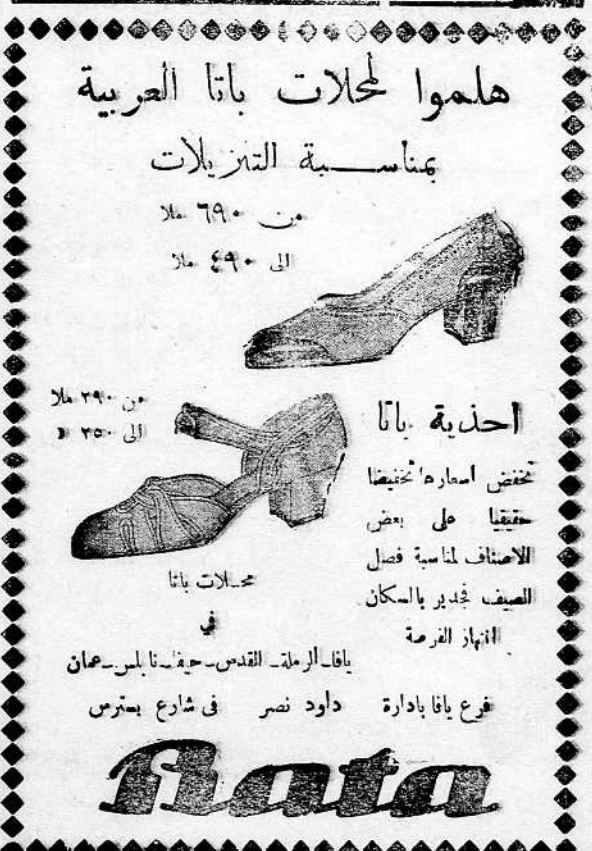 هلموا لمحلات باتا العربية
بمناسبة التنزيلات
من ٦٩٠ ملا
الى ٤٩٠ ملا
من ٣٩٠ ملا
الى ٢٥٠ «
احذية باتا
تخفض اسعارها تخفيضا
حقيقيا على بعض
الاصناف لمناسبة فصل
الصيف فجدير بالسكان
انتهاز الفرصة
محلات باتا
في
يافا ـ الرملة ـ القدس ـ حيفا ـ نابلس ـ عمان
فرع يافا بادارة داود نصر فى شارع بسترس
Bata